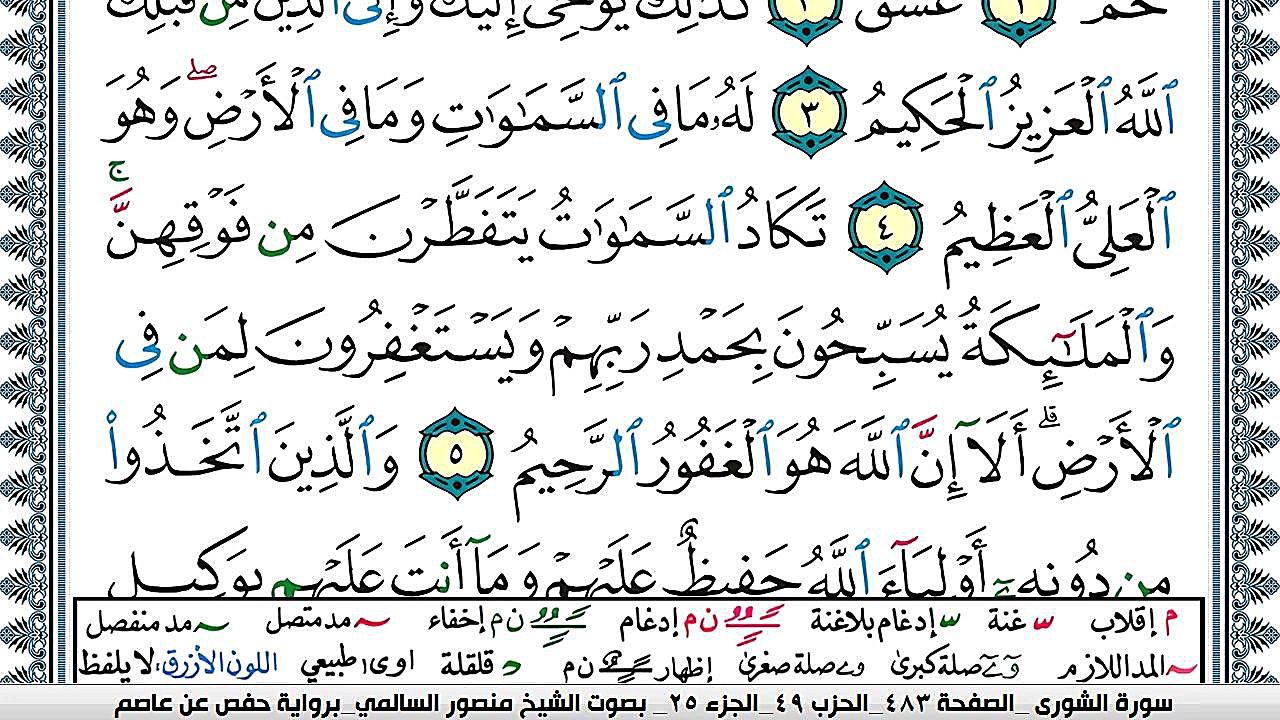 حمٓ ١ عٓسٓقٓ ٢ كَذَٰلِكَ يُوحِىٓ إِلَيْكَ وَإِلَى ٱلَّذِينَ مِن قَبْلِكَ
ٱللَّهُ ٱلْعَزِيزُ ٱلْحَكِيمُ ٣ لَهُۥ مَا فِى ٱلسَّمَٰوَٰتِ وَمَا فِى ٱلْأَرْضِ ۖ وَهُوَ
ٱلْعَلِىُّ ٱلْعَظِيمُ ٤ تَكَادُ ٱلسَّمَٰوَٰتُ يَتَفَطَّرْنَ مِن فَوْقِهِنَّ ۚ
وَٱلْمَلَٰٓئِكَةُ يُسَبِّحُونَ بِحَمْدِ رَبِّهِمْ وَيَسْتَغْفِرُونَ لِمَن فِى
ٱلْأَرْضِ ۗ أَلَآ إِنَّ ٱللَّهَ هُوَ ٱلْغَفُورُ ٱلرَّحِيمُ ٥ وَٱلَّذِينَ ٱتَّخَذُوا۟
مِن دُونِهِۦٓ أَوْلِيَآءَ ٱللَّهُ حَفِيظٌ عَلَيْهِمْ وَمَآ أَنتَ عَلَيْهِم بِوَكِيلٍ
م إقلاب س غنة س إدغام بلاغنة ن م إدغام ن م إخفاء مد متصل مد منفصل
المد اللازم و ے صلة كبرى و ے صلة صغرى إظهار ن م د قلقلة ا و ى طبيعي اللون الأزرق: لا يلفظ
سورة الشورى _الصفحة ٤٨٣_الحزب ٤٩_الجزء ٢٥_ بصوت الشيخ منصور السالمي_برواية حفص عن عاصم